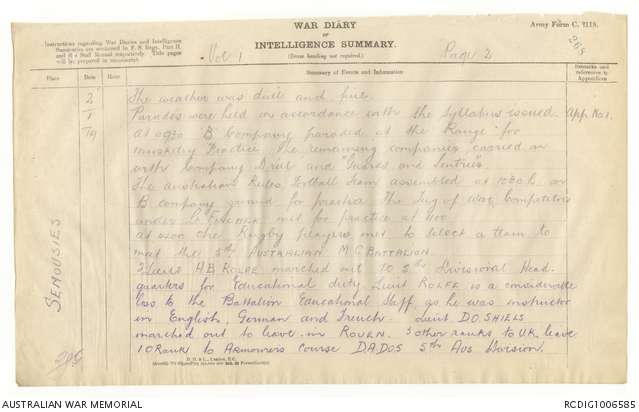 WAR DIARY
OF
INTELLIGENCE SUMMARY.
(Erase heading not required).
Army Form C. 2118.
Instructions regarding War Diaries and Intelligence
Summaries are contained in F. S. Regs., Part II.
and the Staff Manual respectively. Title pages
will be prepared in manuscript.
Vol 1
Page 2
268
Place
Date
Hour
Summary of Events and Information
Remarks and
references to
Appendices
2
1
19
SEMOUSIES
The weather was dull and fine.
Parades were held in accordance with the Syllabus issued. App. No 1.
At 0930 B Company paraded at the Range for
musketry Practice. The remaining companies carried on
with Company Drill and "Guards and Sentries".
The Australian Rules Football Team assembled at 1030 h. on
B company ground for practice. The Tug of war Competitors
under met for practice at 1100.
At 1400 the Rugby players met to select a team to
meet the 5th AUSTRALIAN M.G. BATTALION.
Lieut A.B. ROLFE marched out to 5th Divisional Head-
quarters for Educational duty. Lieut ROLFE is a considerable
loss to the Battalion Educational Staff as he was instructor
in English, German and French. Lieut D.O. SHIELS
marched out to leave in ROUEN. 3 other ranks to U.K. leave
1 O Rank to Armourers Course D.A.D.O.S 5th Aus Division.
AUSTRALIAN WAR MEMORIAL
RCDIG1006585